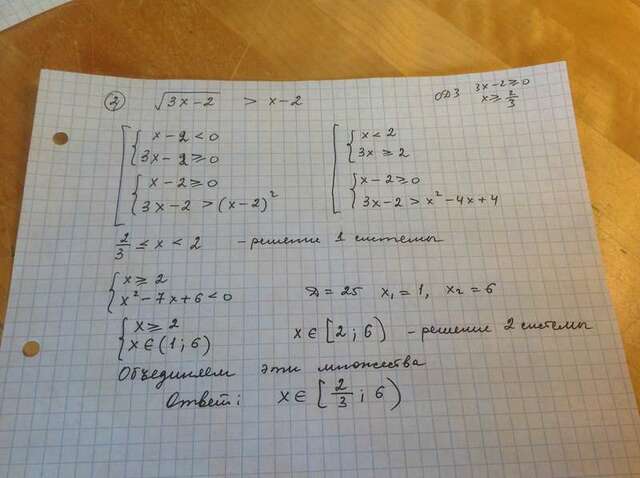 2) √3x-2 > x-2 ОДЗ 3x-2≥0
x≥2/3
[ { x-2<0 [ { x<2
3x-2≥0 3x≥2
{ x-2≥0 { x-2≥0
3x-2>(x-2)² 3x-2>x²-4x+4
2/3 ≤ x < 2 - решение 1 системы
{ x≥2
x²-7x+6<0 D=25 x₁=1, x₂=6
{ x≥2
x∈(1;6) x∈[2;6) - решение 2 системы
Объединяем эти множества
Ответ: x∈[2/3;6)